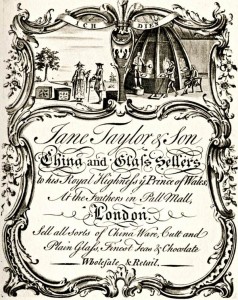 ICH DIEN
Jane Taylor & Son
China and Glass Sellers
to his Royal Highness ye Prince of Wales,
At the Feathers in Pall Mall,
London.
Sell all Sorts of China Ware, Cutt and
Plain Glass, Finest Teas & Chocolate
Wholesale & Retail.